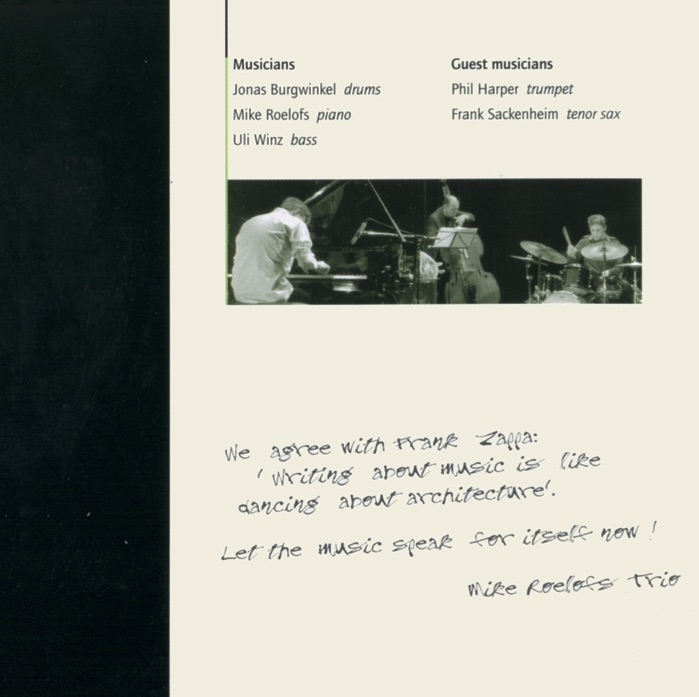 Musicians
Jonas Burgwinkel drums
Mike Roelofs piano
Uli Winz bass
Guest musicians
Phil Harper trumpet
Frank Sackenheim tenor sax
We agree with Frank Zappa:
'Writing about music is like
dancing about architecture'.
Let the music speak for itself now !
Mike Roelofs Trio